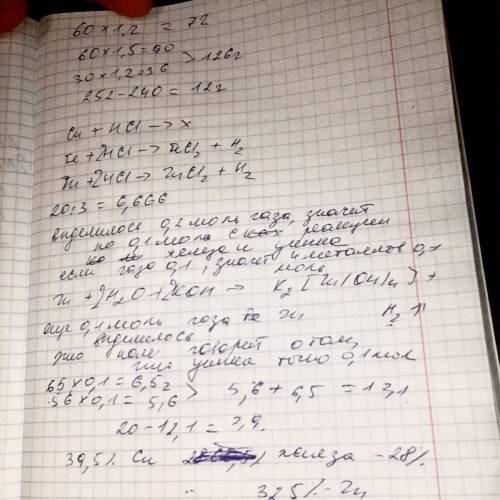 60×1,2 = 72
60×1,5=90
30×1,2=36 > 126г
252-240=12г
Cu + HCl → x
Fe + 2HCl → FeCl₂ + H₂
Zn + 2HCl → ZnCl₂ + H₂
20:3 = 6,666
выделилось 0,2 моль газа, значит
по 0,1 моль с реакции
железа и цинка
если газа 0,1, значит и металлов 0,1
моль
Zn + 2H₂O + 2KOH → K₂[Zn(OH)₄] +
H₂↑
еще 0,1 моль газа
выделилось
это нам говорит о том,
что цинка точно 0,1 мол
65×0,1=6,5г
56×0,1=5,6 > 5,6+6,5 = 12,1
20-12,1 = 7,9.
39,5% Cu железа - 28%
32,5% - Zn